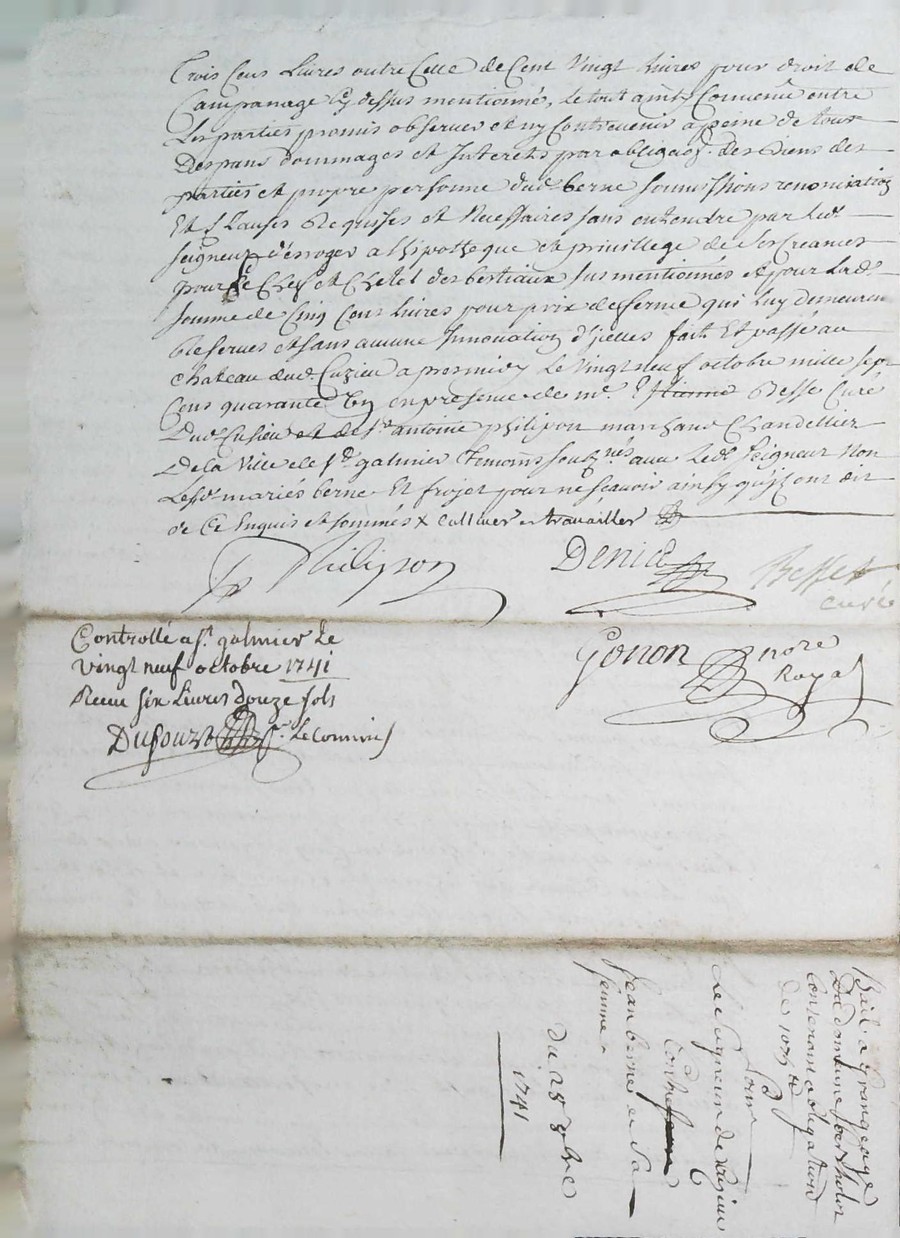 Trois Cens Livres outre Celle de Cent Vingt Livres pour droit de
Campanage Cy dessus mentionné, le tout ainsy Convenu entre
Les parties promis observer et ny Contrevenir a peine de tous
Despans dommages et Interets par obligaõn des Biens des
parties et propre personne dud. berne soumissions renonciation
Et Clauses Requises et Necessaires sans entendre par Led.
seigneur desroger a l'hipotheque et privillege de ses Creances
pour le Chef et Chetel des bestiaux sus mentionnés et pour Lad.
somme de Cinq Cens Livres pour prix de ferme qui luy demeurent
Reserves et sans aucune Innovation d'icelles fait Et passé au
chateau dud. Cuzieu a presmidy Le Vingt neuf octobre mille sept
Cens quarante Un en presence de me. Estienne Besse Curé
Dud. Cusieu et de sr. antoine philipon marchand Chandellier
De la Ville de St. galmier temoins soubsnés avec Led. Seigneur Non
Lesd. mariés berne Et frojet pour ne scavoir ainsy qu'ils ont dit
de Ce Enquis et sommés x cultiver et travailler
Philipon
Denis
Besse
curé
Gonon nore
Royal
Controllé a St. galmier Le
Vingt neuf octobre 1741
Receu six Livres douze sols
Le Commis
Bail a grangeage
Du domaine
Contenant obligation
de
Pour
Le seigneur de Cuzieu
Contre
Jean berne et sa
femme
Du 28 8bre
1741